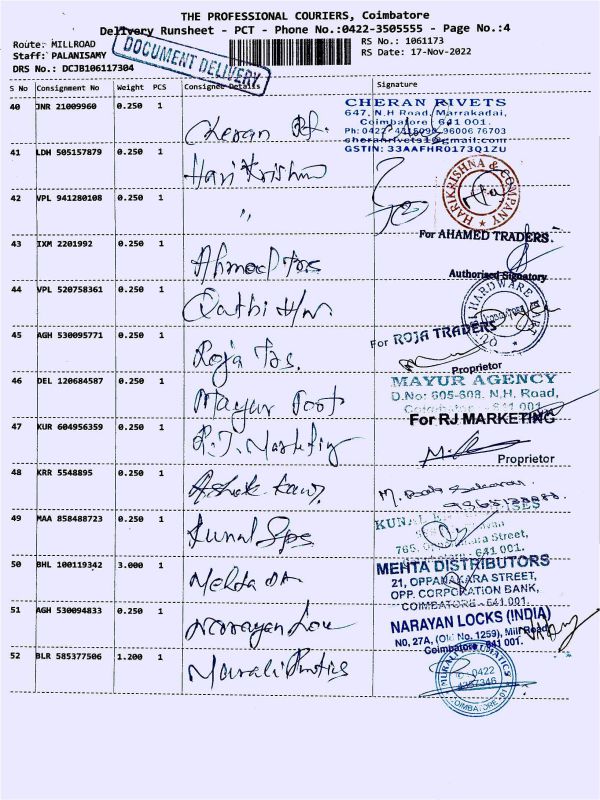 THE PROFESSIONAL COURIERS, Coimbatore
Delivery Runsheet - PCT - Phone No.:0422-3505555 - Page No.:4
Route: MILLROAD
RS No.: 1061173
Staff: PALANISAMY
RS Date: 17-Nov-2022
DRS No.: DCJB106117304
DOCUMENT DELIVERY
S No Consignment No Weight PCS Consignee Details Signature
40 JNR 21009960 0.250 1 Cheran Rt.
CHERAN RIVETS
647, N.H Road, Marrakadai,
Coimbatore 641 001.
Ph: 0422 96006 76703
cheranrivets1@gmail.com
GSTIN: 33AAFHR0173Q1ZU
41 LDH 505157879 0.250 1 Hari Krishna
HARIKRISHNA & COMPANY
42 VPL 941280108 0.250 1 "
For AHAMED TRADERS.
43 IXM 2201992 0.250 1 Ahmed Trs
Authorised Signatory
44 VPL 520758361 0.250 1 Rathi H/w
HARDWARE MART
For ROJA TRADERS
45 AGH 530095771 0.250 1 Roja Trs.
Proprietor
46 DEL 120684587 0.250 1 Mayur
MAYUR AGENCY
D.No: 605-608. N.H. Road,
Coimbatore - 641 001
47 KUR 604956359 0.250 1 R.J. Marketing
For RJ MARKETING
Proprietor
48 KRR 5548895 0.250 1 Ashok
49 MAA 858488723 0.250 1 Kunal
KUNAL
765, Street,
641 001.
50 BHL 100119342 3.000 1 Mehta
MEHTA DISTRIBUTORS
21, OPPANAKARA STREET,
OPP. CORPORATION BANK,
COIMBATORE - 641 001.
51 AGH 530094833 0.250 1 Narayan
NARAYAN LOCKS (INDIA)
NO, 27A, (Old No. 1259), Mill Road
Coimbatore 641 001.
52 BLR 585377506 1.200 1 Murali
0422
COIMBATORE